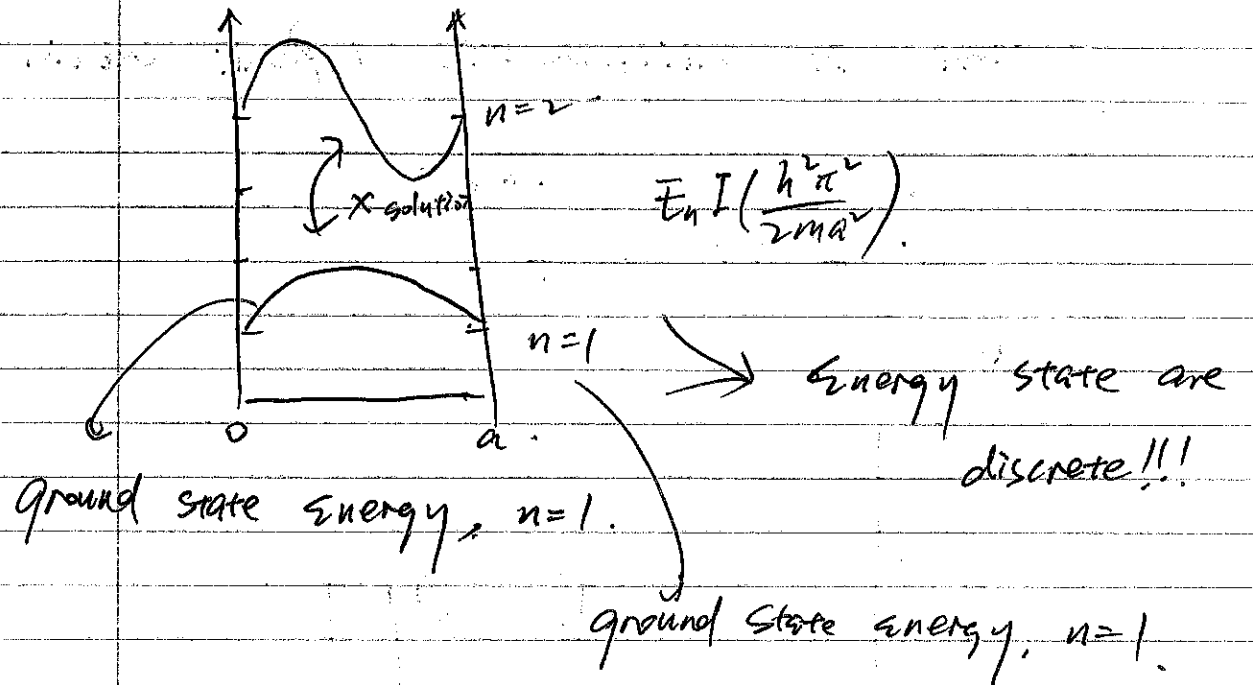 n=2
X solution
E_n I(ℏ²π²/2ma²).
n=1
Energy state are
discrete!!!
0
a.
ground state energy, n=1.
ground state energy, n=1.